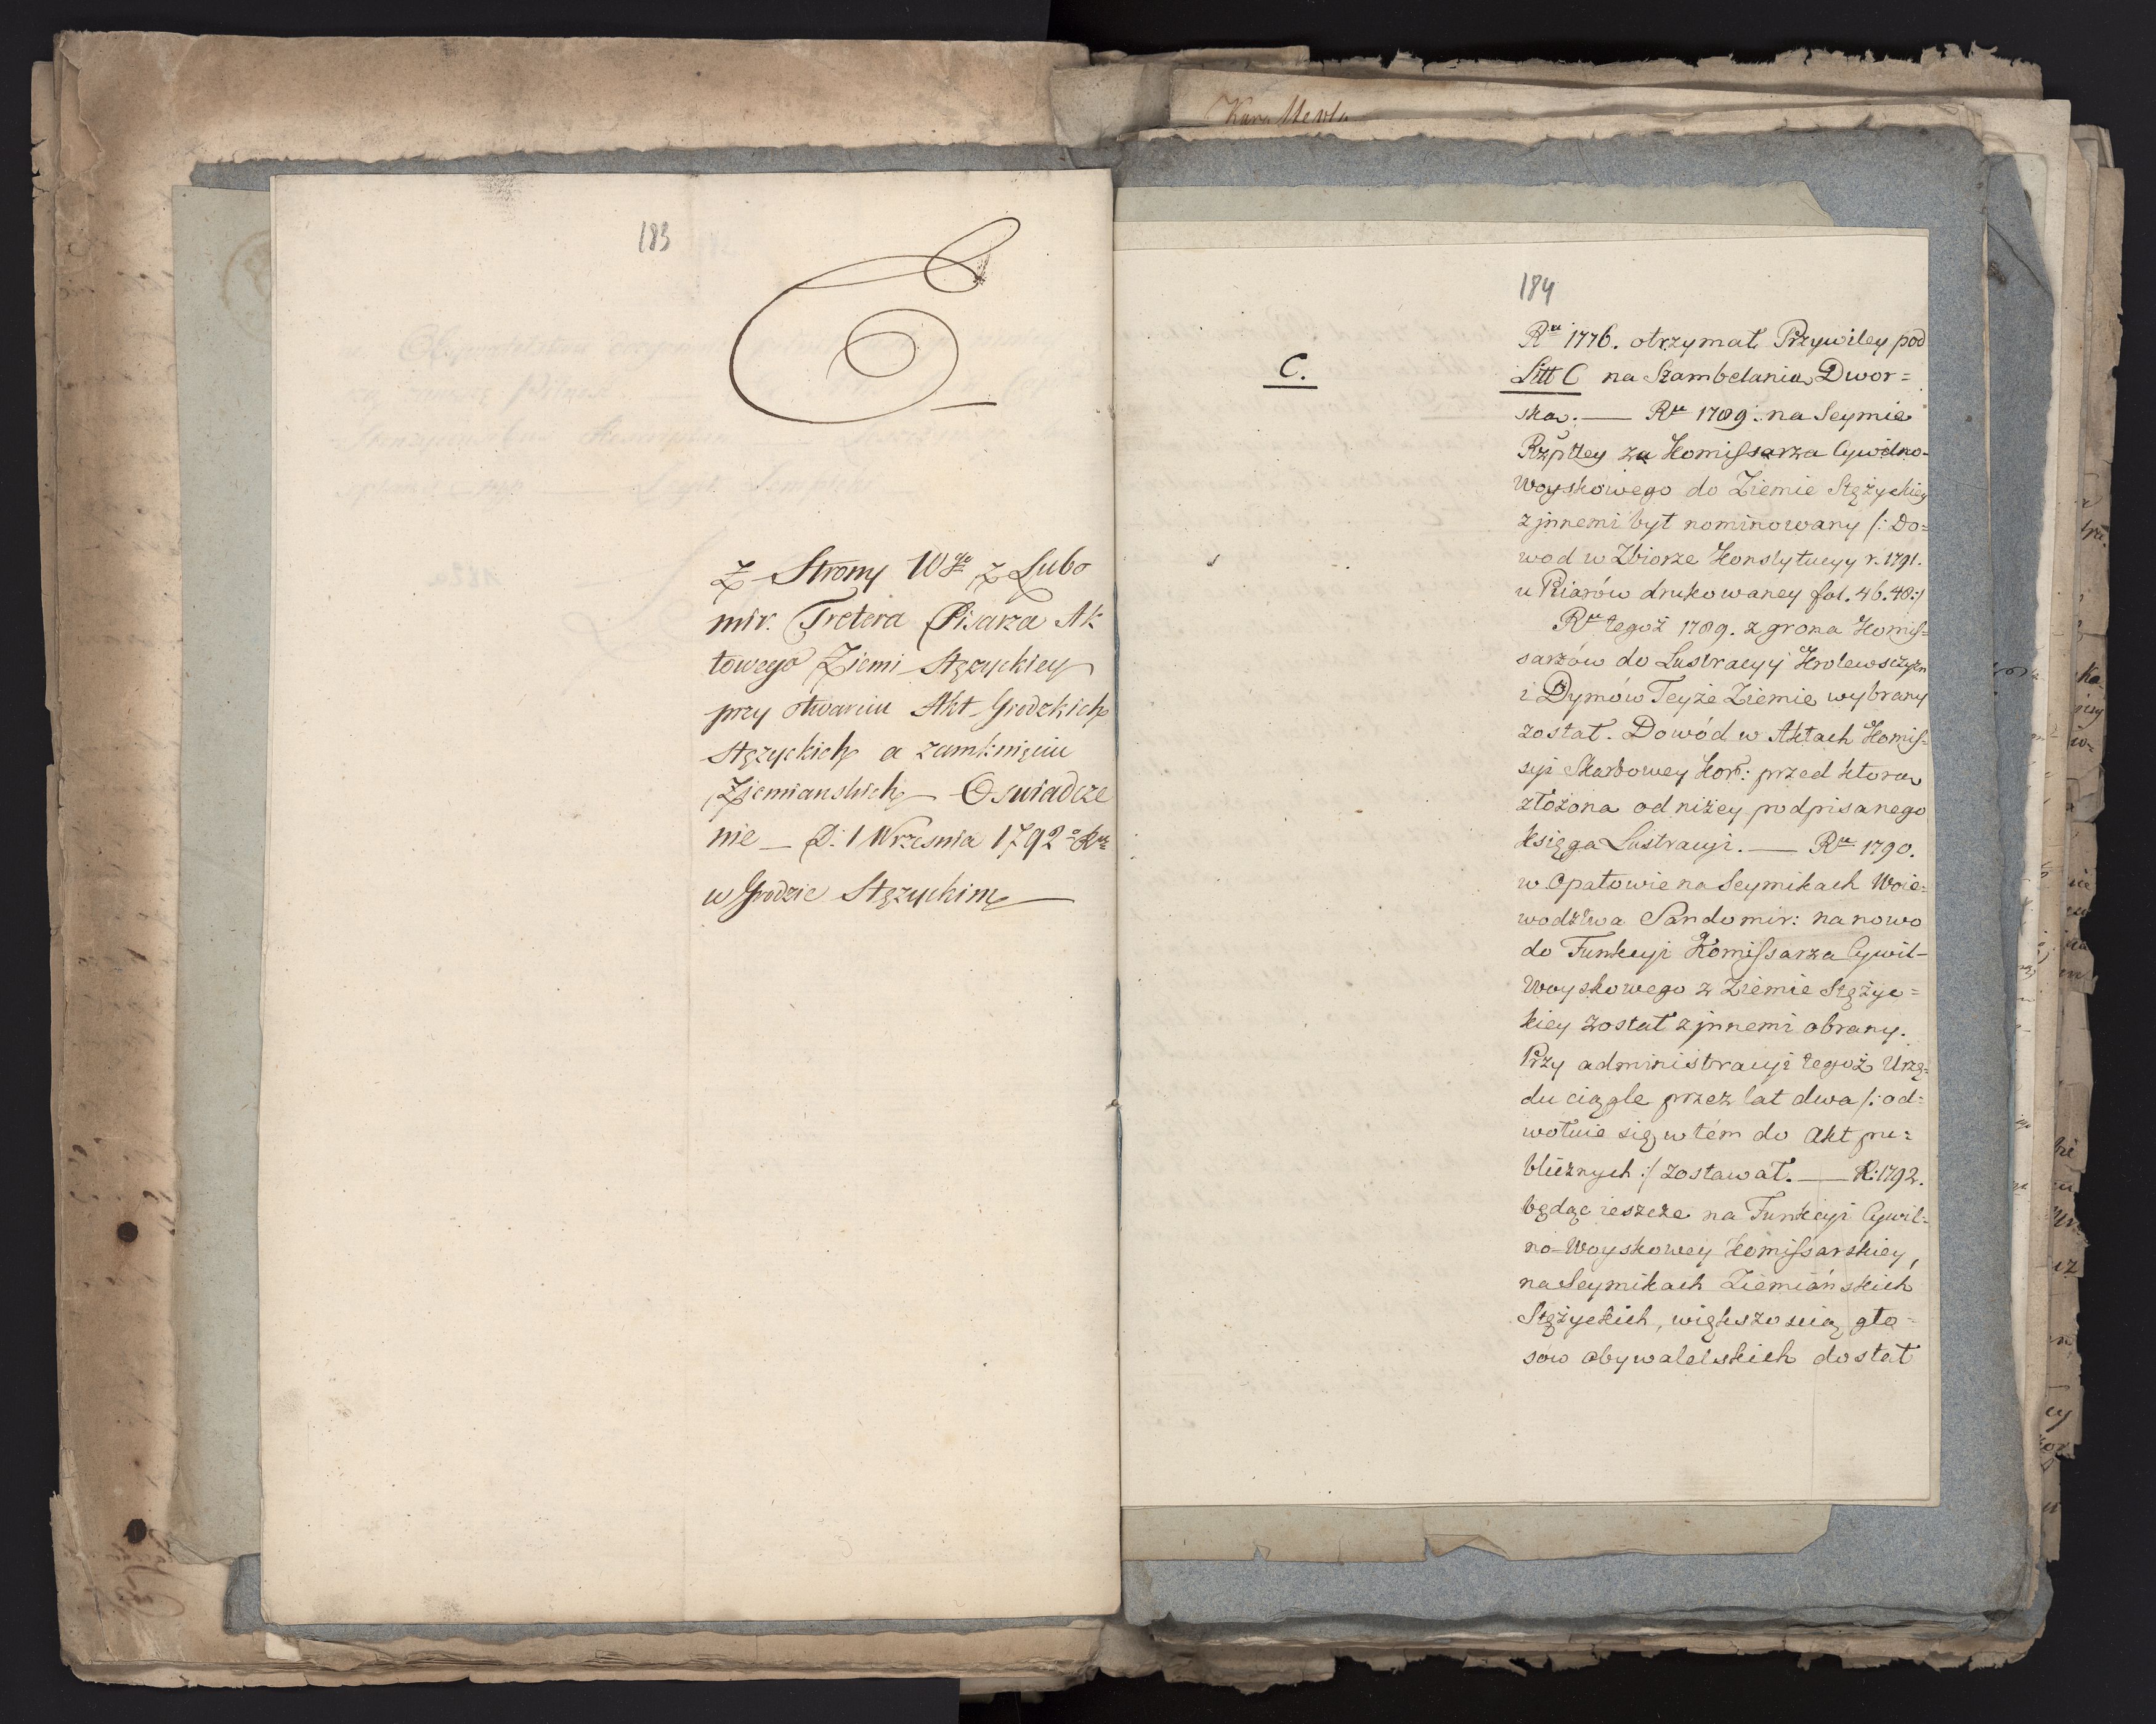 183
C
Z Strony Wgo z Lubo
mir. Tretera Pisarza Ak
towego Ziemi Stęzyckiey
przy otwarciu Akt Grodzkich
Stęzyckich a zamknięciu
Ziemianskich Oswiadcze
nie D. 1 Wrzesnia 1792 Ru
w Grodzie Stęzyckim
184
C.
Ru 1776. otrzymał Przywiley pod
Litt C na Szambelanią Dwor=
ską. Ru 1789. na Seymie
Rzpttey za Komissarza Cywilno-
Woyskowego do Ziemie Stężyckiey
z jnnemi był nominowany /: Do=
wod w Zbiorze Konstytucyy r. 1791.
u Piiarów drukowaney fol. 46. 48:/
Ru tegoż 1789. z grona Komis=
sarzów do Lustracyy Krolewsczyzn
i Dymów Teyże Ziemie wybrany
został. Dowód w Aktach Komis=
syi Skarbowey Kor: przed ktorą
złożona od niżey podpisanego
księga Lustracyi. Ru 1790.
w Opatowie na Seymikach Woie=
wodztwa Sandomir: na nowo
do Funkcyi Komissarza Cywil-
Woyskowego z Ziemie Stężyc=
kiey został z jnnemi obrany.
Przy administracyi tegoż Urzę=
du ciągle przez lat dwa /: od=
wołuie się w tém do Akt pu=
blicznych :/ zostawał. R: 1792.
będąc ieszcze na Funkcyi Cywil=
no-Woyskowey Komissarskiey,
na Seymikach Ziemiańskich
Stężyckich, większoscią gło=
sow obywatelskich dostał